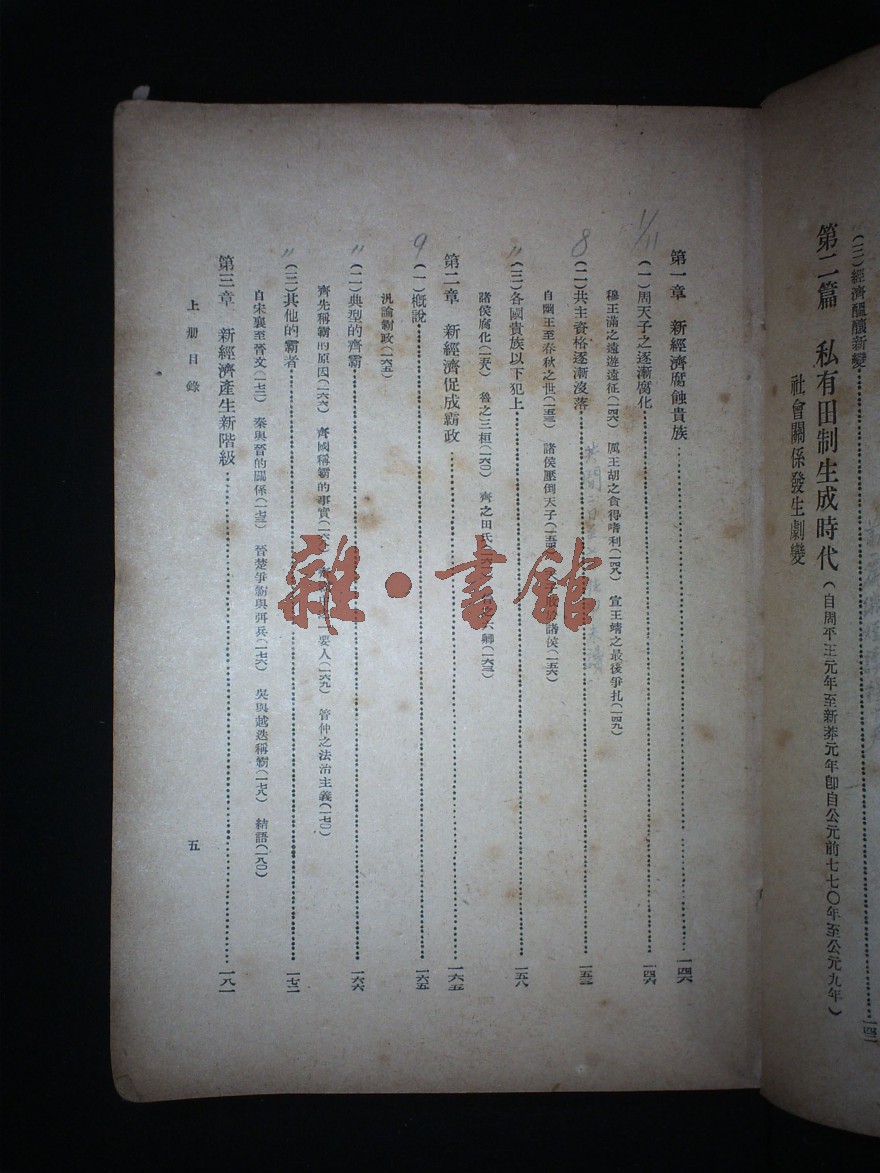 (三)經濟醞釀新變……一四二
第二篇 私有田制生成時代(自周平王元年至新莽元年卽自公元前七七〇年至公元九年)
社會關係發生劇變
第一章 新經濟腐蝕貴族……一四六
(一)周天子之逐漸腐化……一四六
穆王滿之遠遊遠征(一四六) 厲王胡之貪得嗜利(一四九) 宣王靖之最後爭扎(一四九)
(二)共主資格逐漸沒落……一五三
自幽王至春秋之世(一五三) 諸侯壓倒天子(一五四) 諸侯(一五六)
(三)各國貴族以下犯上……一五八
諸侯腐化(一五八) 魯之三桓(一六〇) 齊之田氏 六卿(一六三)
第二章 新經濟促成霸政……一六五
(一)概說……一六五
汎論霸政(一六五)
(二)典型的齊霸……一六六
齊先稱霸的原因(一六六) 齊國稱霸的事實 要人(一六九) 管仲之法治主義(一七〇)
(三)其他的霸者……一七二
自宋襄至晉文(一七二) 秦與晉的關係(一七三) 晉楚爭霸與弭兵(一七六) 吳與越迭稱霸(一七八) 結語(一八〇)
第三章 新經濟產生新階級……一八一
上册目錄
五
1/11
8
〃
9
〃
〃
雜·書館